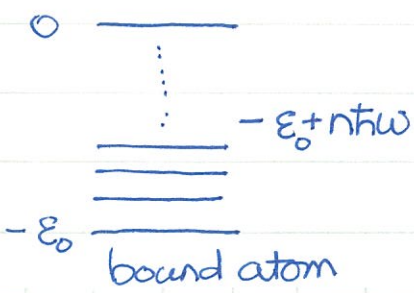 0
- ε₀ + nħω
- ε₀
bound atom